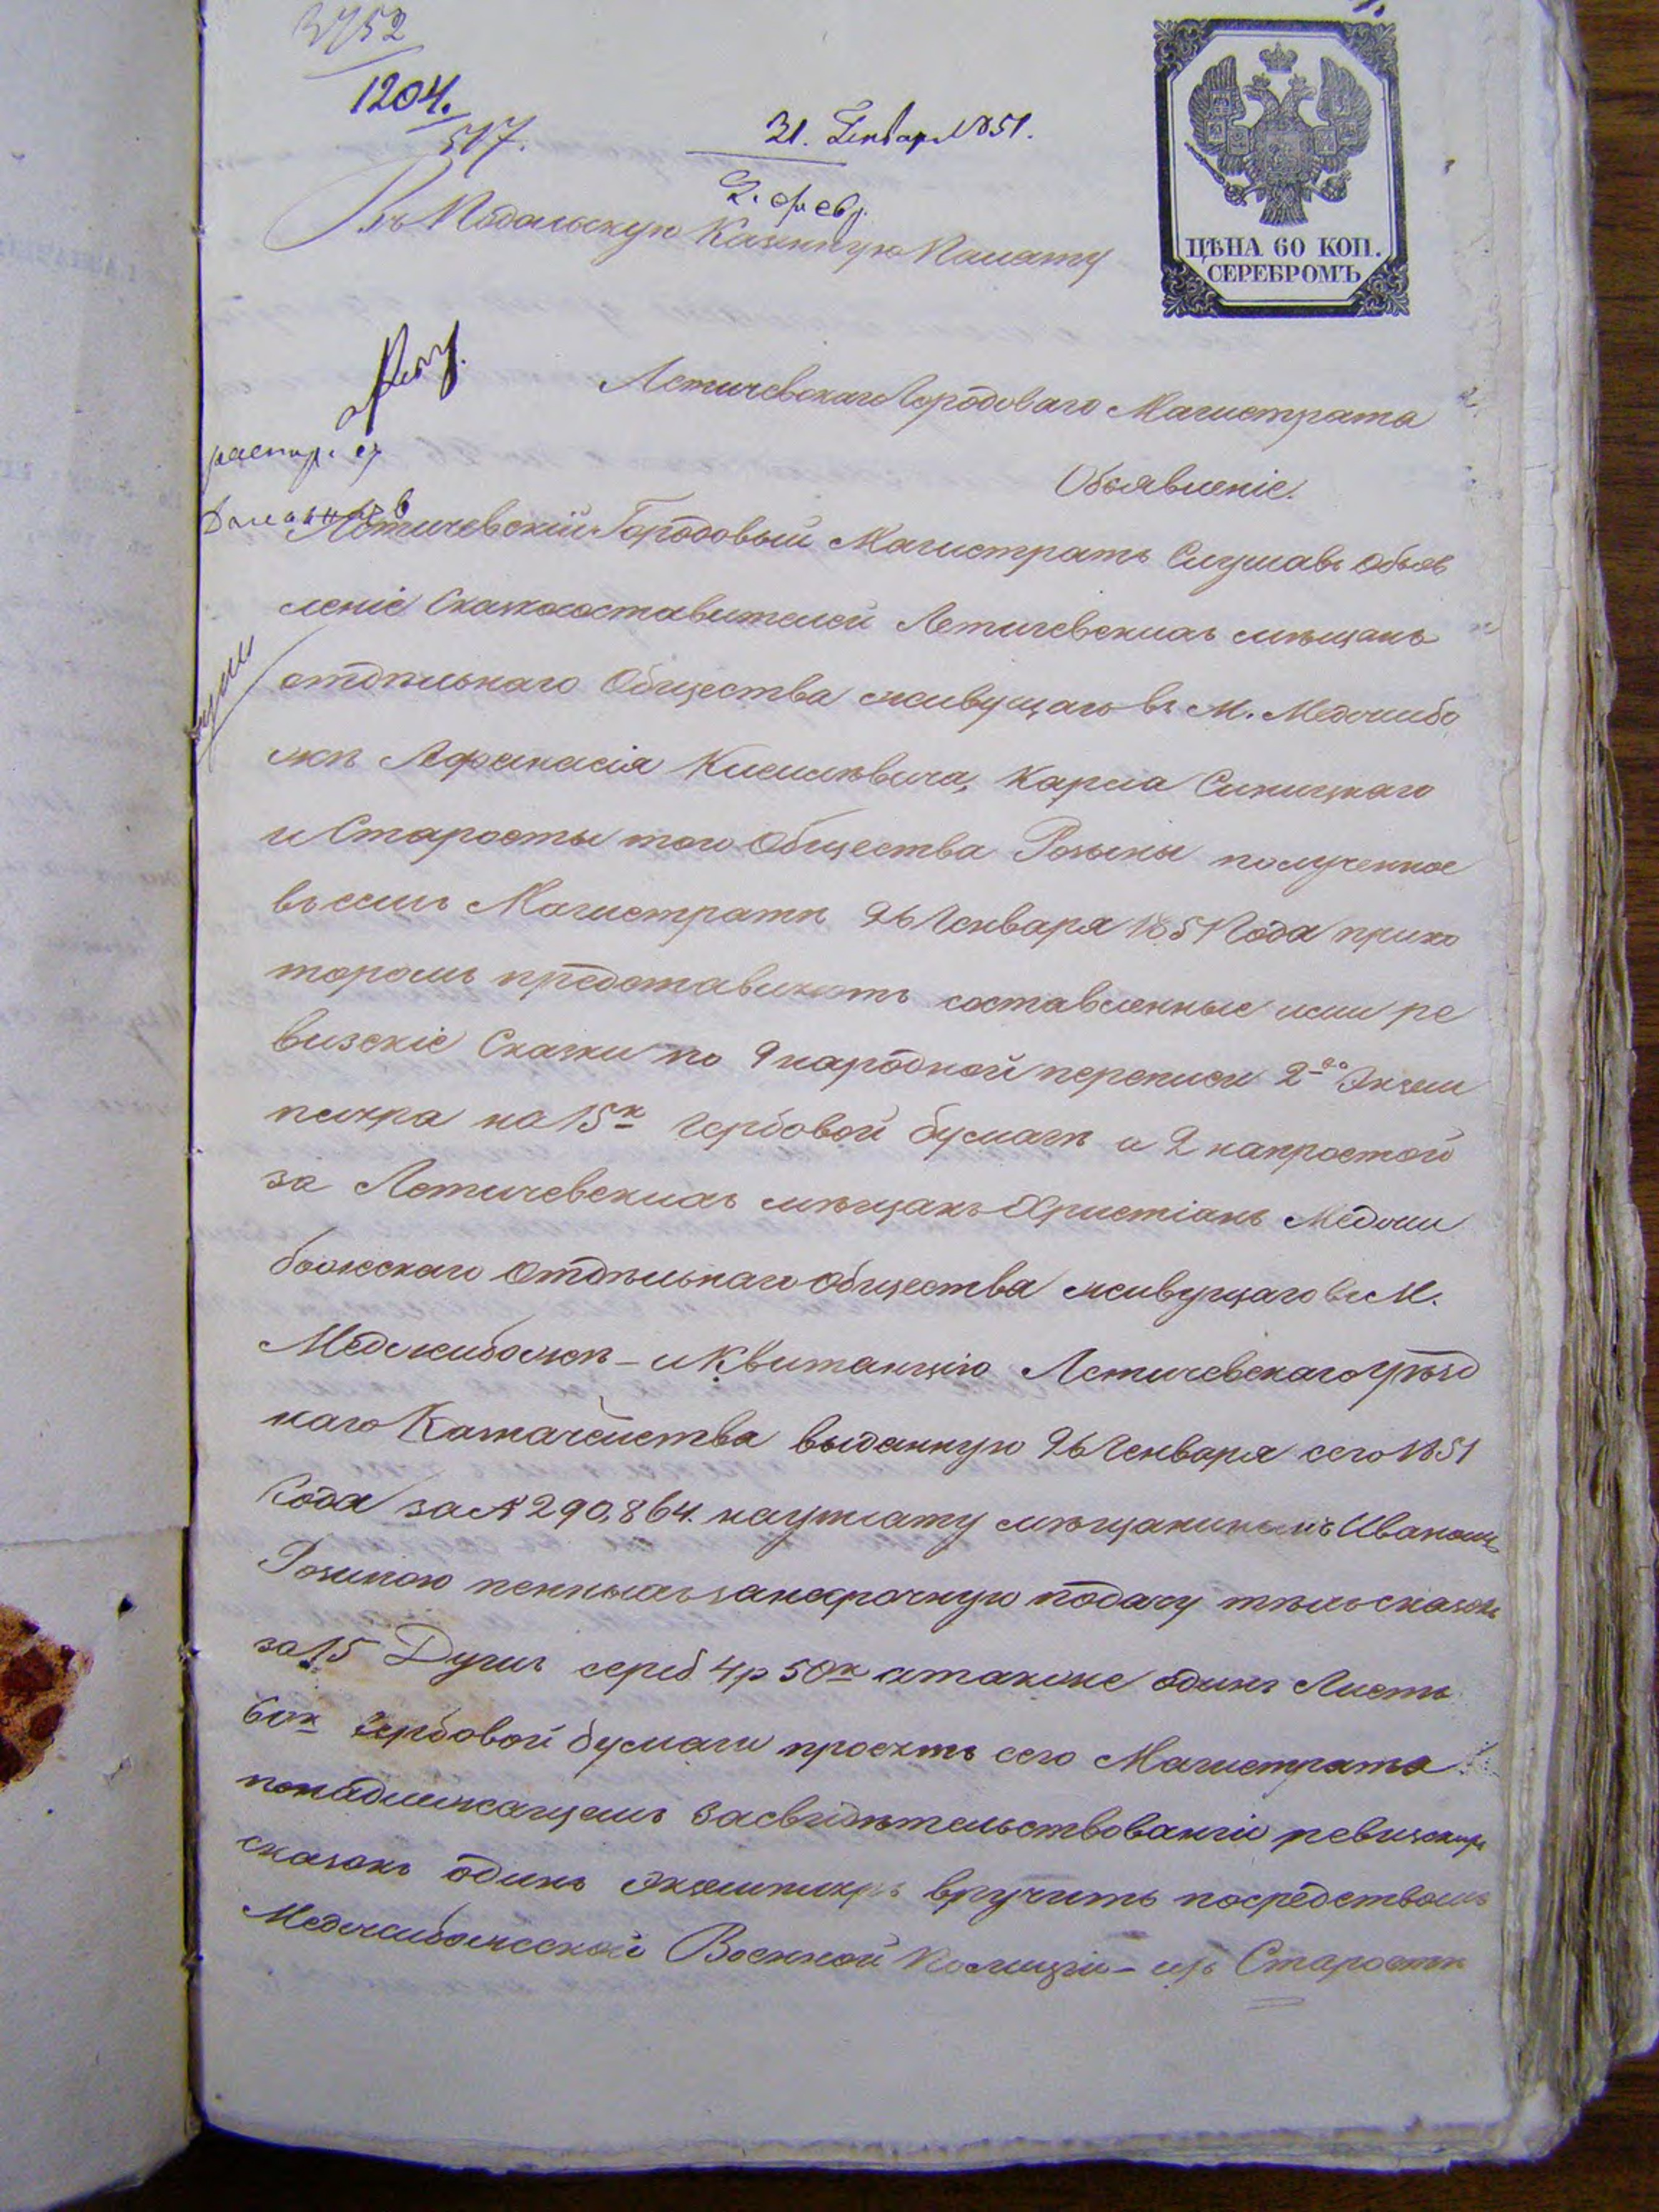 3752
1204.
517.
31. Генваря 1851.
2. февр.
ЦѢНА 60 КОП.
СЕРЕБРОМЪ.
Въ Подольскую Казенную Палату
Летичевскаго Городоваго Магистрата
Объявленіе.
Летичевскій Городовый Магистратъ Слушавъ объяв
леніе Сказкосоставителей Летичевскихъ мѣщанъ
отдѣльнаго Общества живущаго въ М. Меджибо
жѣ Афанасія Кисилевича, Карла Синицкаго
и Старосты того Общества Розыны полученное
въ семъ Магистратѣ 26 Генваря 1851 Года при ко
торомъ представляютъ составленные ими ре
визскіе Сказки по 9 народной переписи 2 Экзем
пляра на 15к Гербовой бумагѣ и 2 на простой
за Летичевскихъ мѣщанъ Христіанъ Меджи
божскаго отдѣльнаго общества живущаго въ М.
Меджибожѣ – и Квитанцію Летичевскаго Уѣзд
наго Казначейства выданную 26 Генваря сего 1851
Года за № 290,864. на уплату мѣщаниномъ Иваномъ
Розиною пенныхъ за несрочную подачу тѣхъ сказокъ
за 15 Душъ сереб 4р 50к а также одинъ Листъ
60к Гербовой бумаги просятъ сего Магистрата
по надлежащемъ засвидѣтельствованіи ревизскихъ
сказокъ одинъ экземпляръ вручить посредствомъ
Меджибожской Военной Полиціи – ихъ Старостѣ